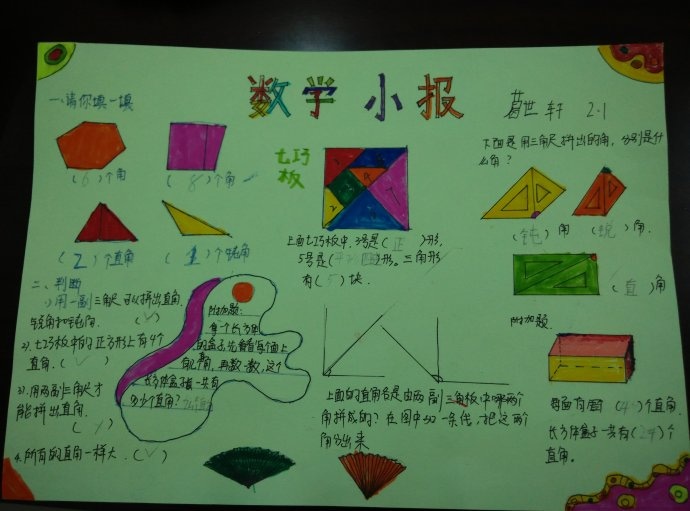 数学小报
葛世轩 2.1
一、请你填一填
(6)个角
(8)个角
(2)个直角
(1)个钝角
二、判断
1)用一副三角尺可以拼出直角、
锐角和钝角. (✓)
2)、七巧板中的正方形上有4个
直角. (✓)
3)、用两副三角尺才
能拼出直角.
(×)
4、所有的直角一样大. (✓)
附加题:
每个长方体
的盒子,先看看每个面上
有几个直角,再数一数,这个
长方体盒子一共有
多少个直角?
七巧
板
1
2
上面七巧板中,3号是(正)形,
5号是(平行四)形。三角形
有(5)块.
上面的直角各是由两副三角板中哪两个
角拼成的?在图中加一条线,把这两个
角分出来
下面是用三角尺拼出的角,分别是什
么角?
(钝)角 (锐)角.
(直)角
附加题.
每面有(4)个直角.
长方体盒子一共有(24)个
直角。